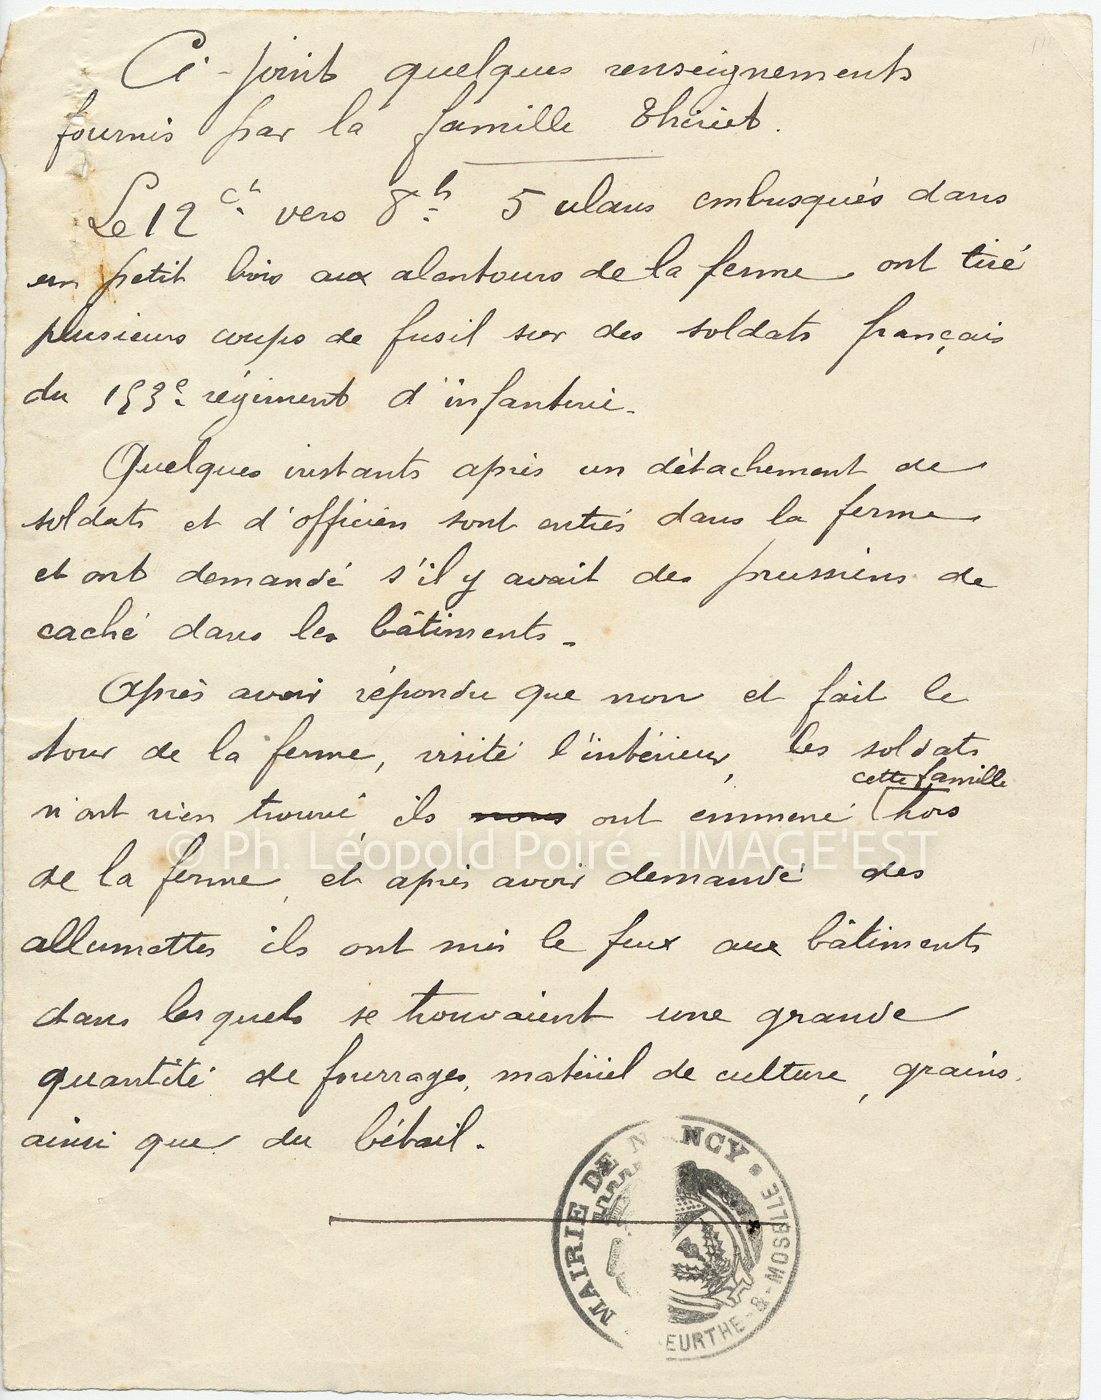 Ci-joint quelques renseignements
fournis par la famille Thiriet.
Le 12 ct. vers 8h 5 ulans embusqués dans
un petit bois aux alentours de la ferme ont tiré
plusieurs coups de fusil sur des soldats français
du 153e régiment d'infanterie.
Quelques instants après un détachement de
soldats et d'officiers sont entrés dans la ferme
et ont demandé s'il y avait des prussiens de
caché dans les bâtiments.
Après avoir répondu que non et fait le
tour de la ferme, visité l'intérieur, les soldats
cette famille
n'ont rien trouvé ils nous ont emmené hors
de la ferme, et après avoir demandé des
allumettes ils ont mis le feux aux bâtiments
dans lesquels se trouvaient une grande
quantité de fourrages, matériel de culture, grains
ainsi que du bétail.
MAIRIE DE NANCY
MEURTHE-&-MOSELLE
© Ph. Léopold Poiré - IMAGE'EST